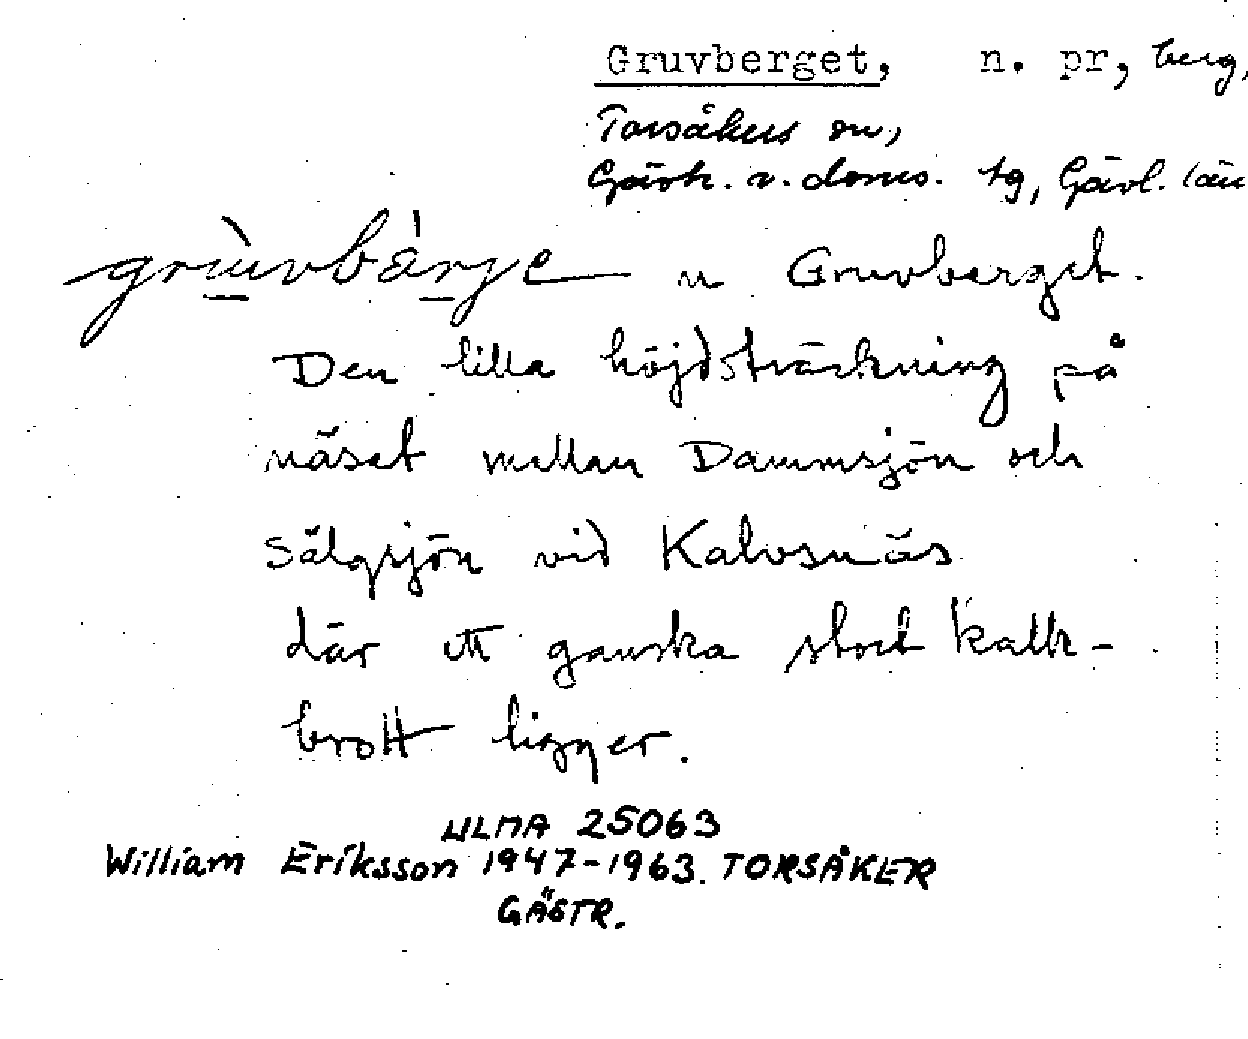 Gruvberget, n. pr, berg,
Torsåkers sn,
Gästr. v. doms. tg, Gävl. län
grùvbárje n Gruvberget.
Den lilla höjdsträckning på
näset mellan Dammsjön och
Sälgsjön vid Kalvsnäs
där ett ganska stort kalk-
brott ligger.
ULMA 25063
William Eriksson 1947-1963. TORSÅKER
GÄSTR.